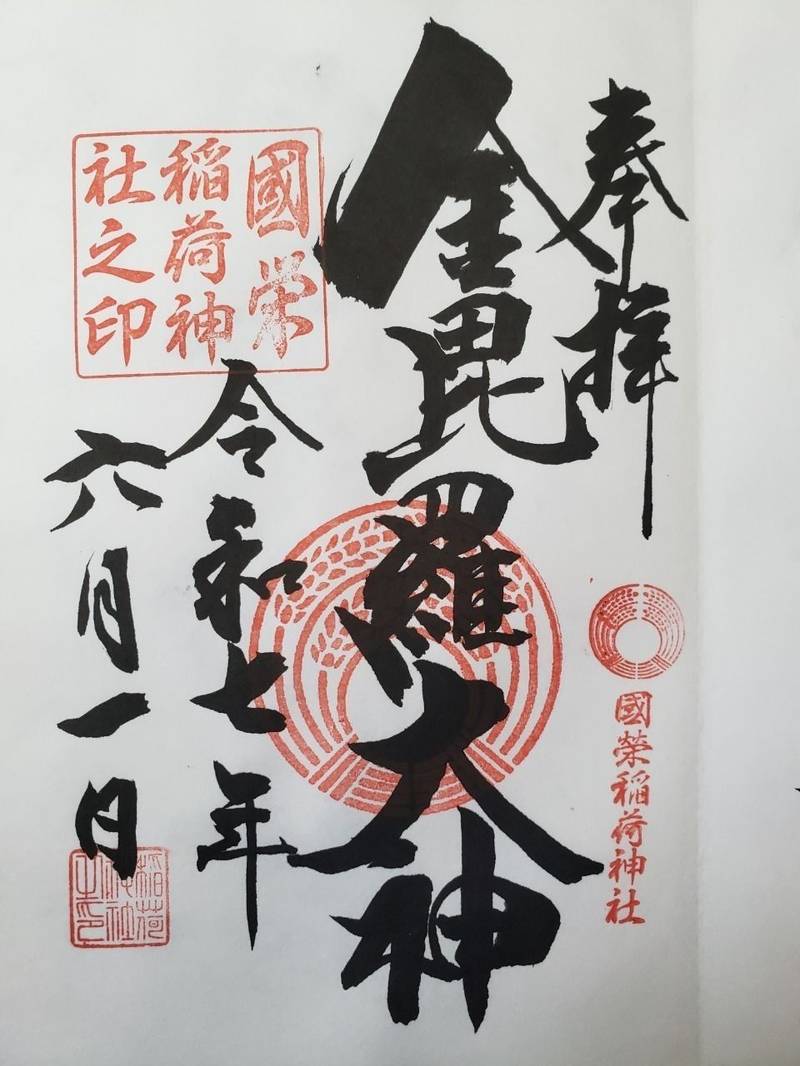 奉拝
國榮稲荷神社
金毘羅大神
令和七年
六月一日
國栄
稲荷神
社之印